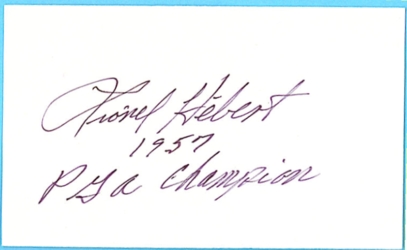 Lionel Hebert
1957
PGA Champion